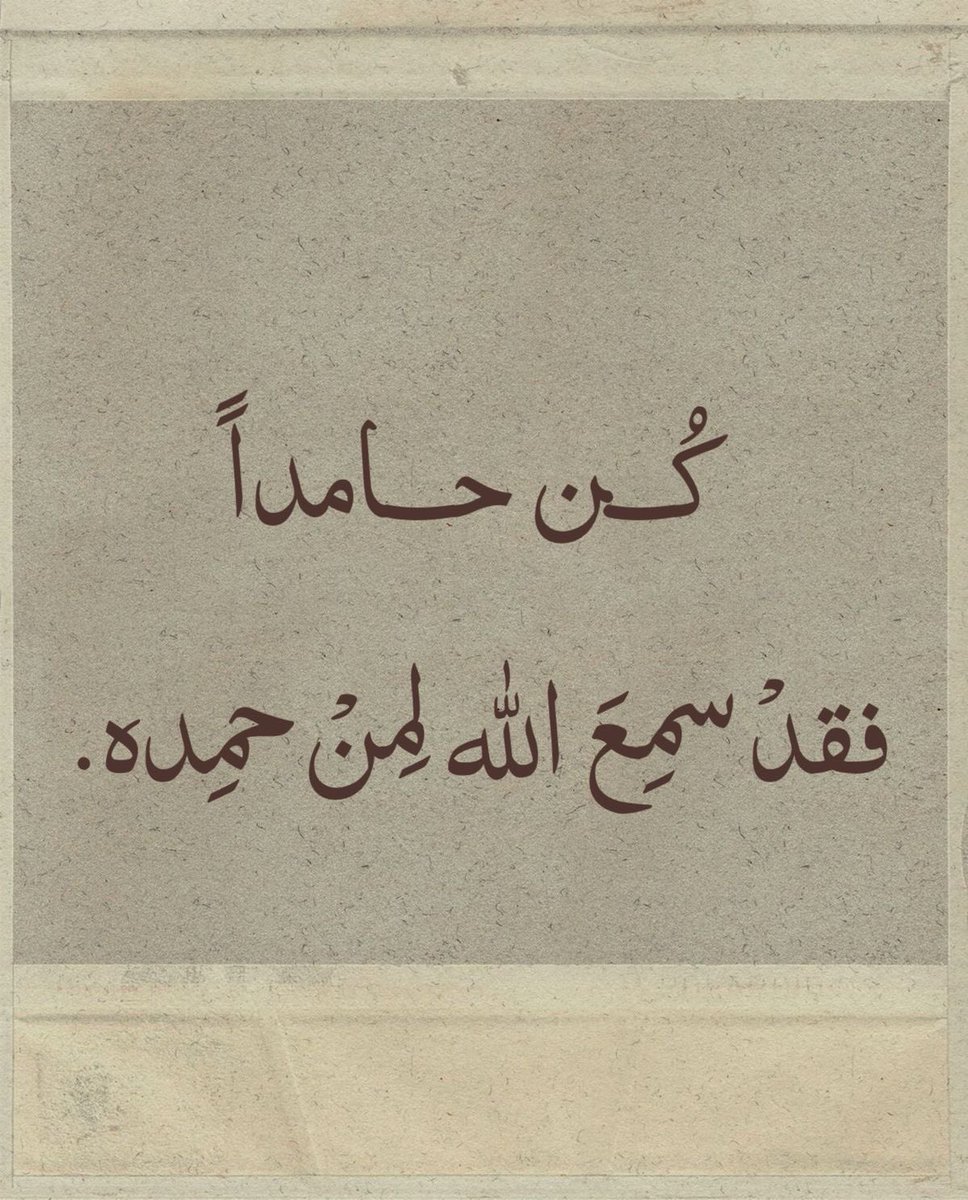 كُـن حـامداً
فقدْ سمِعَ الله لِمِنْ حمِده.